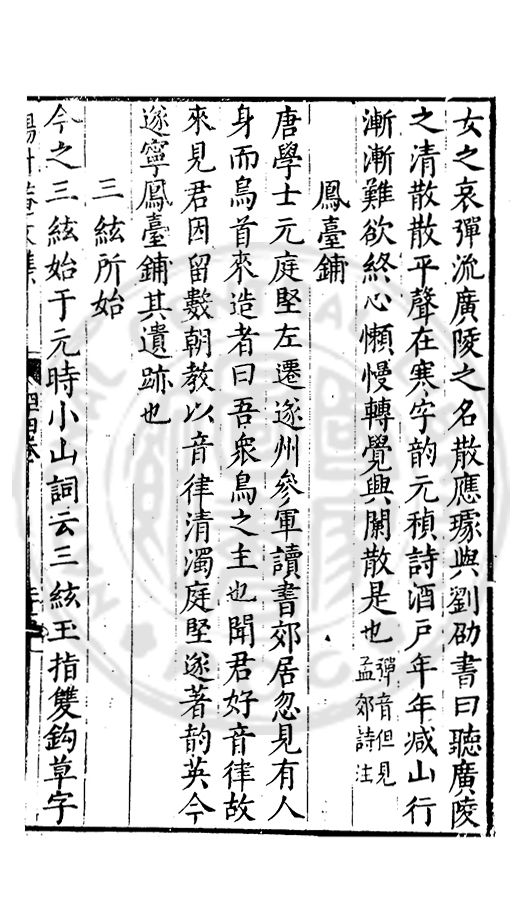 女之哀彈流廣陵之名散應璩與劉劭書曰聽廣陵
之清散散平聲在寒字韵元稹詩酒戶年年減山行
漸漸難欲終心懶慢轉覺興闌散是也彈音但見孟郊詩注
鳳臺鋪
唐學士元庭堅左遷遂州參軍讀書郊居忽見有人
身而鳥首來造者曰吾衆鳥之主也聞君好音律故
來見君因留數朝教以音律清濁庭堅遂著韵英今
遂寧鳳臺鋪其遺跡也
三絃所始
今之三絃始于元時小山詞云三絃玉指雙鈎草字